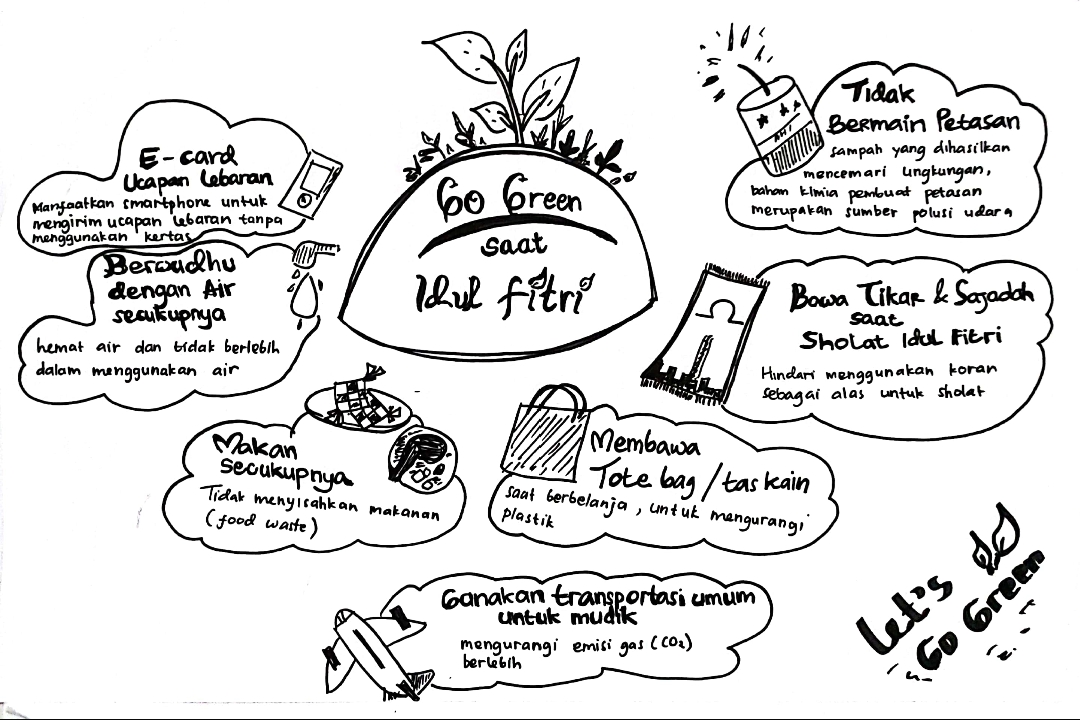 Go Green
saat
Idul fitri
E-card
Ucapan Lebaran
Manfaatkan smartphone untuk
mengirim ucapan lebaran tanpa
menggunakan kertas
Berwudhu
dengan Air
secukupnya
hemat air dan tidak berlebih
dalam menggunakan air
Makan
secukupnya
Tidak menyisahkan makanan
(food waste)
Tidak
Bermain Petasan
sampah yang dihasilkan
mencemari lingkungan,
bahan kimia pembuat petasan
merupakan sumber polusi udara
Bawa Tikar & Sajadah
saat
Sholat Idul Fitri
Hindari menggunakan koran
sebagai alas untuk sholat
Membawa
Tote bag / tas kain
saat berbelanja, untuk mengurangi
plastik
Gunakan transportasi umum
untuk mudik
mengurangi emisi gas (CO₂)
berlebih
Let's
Go Green